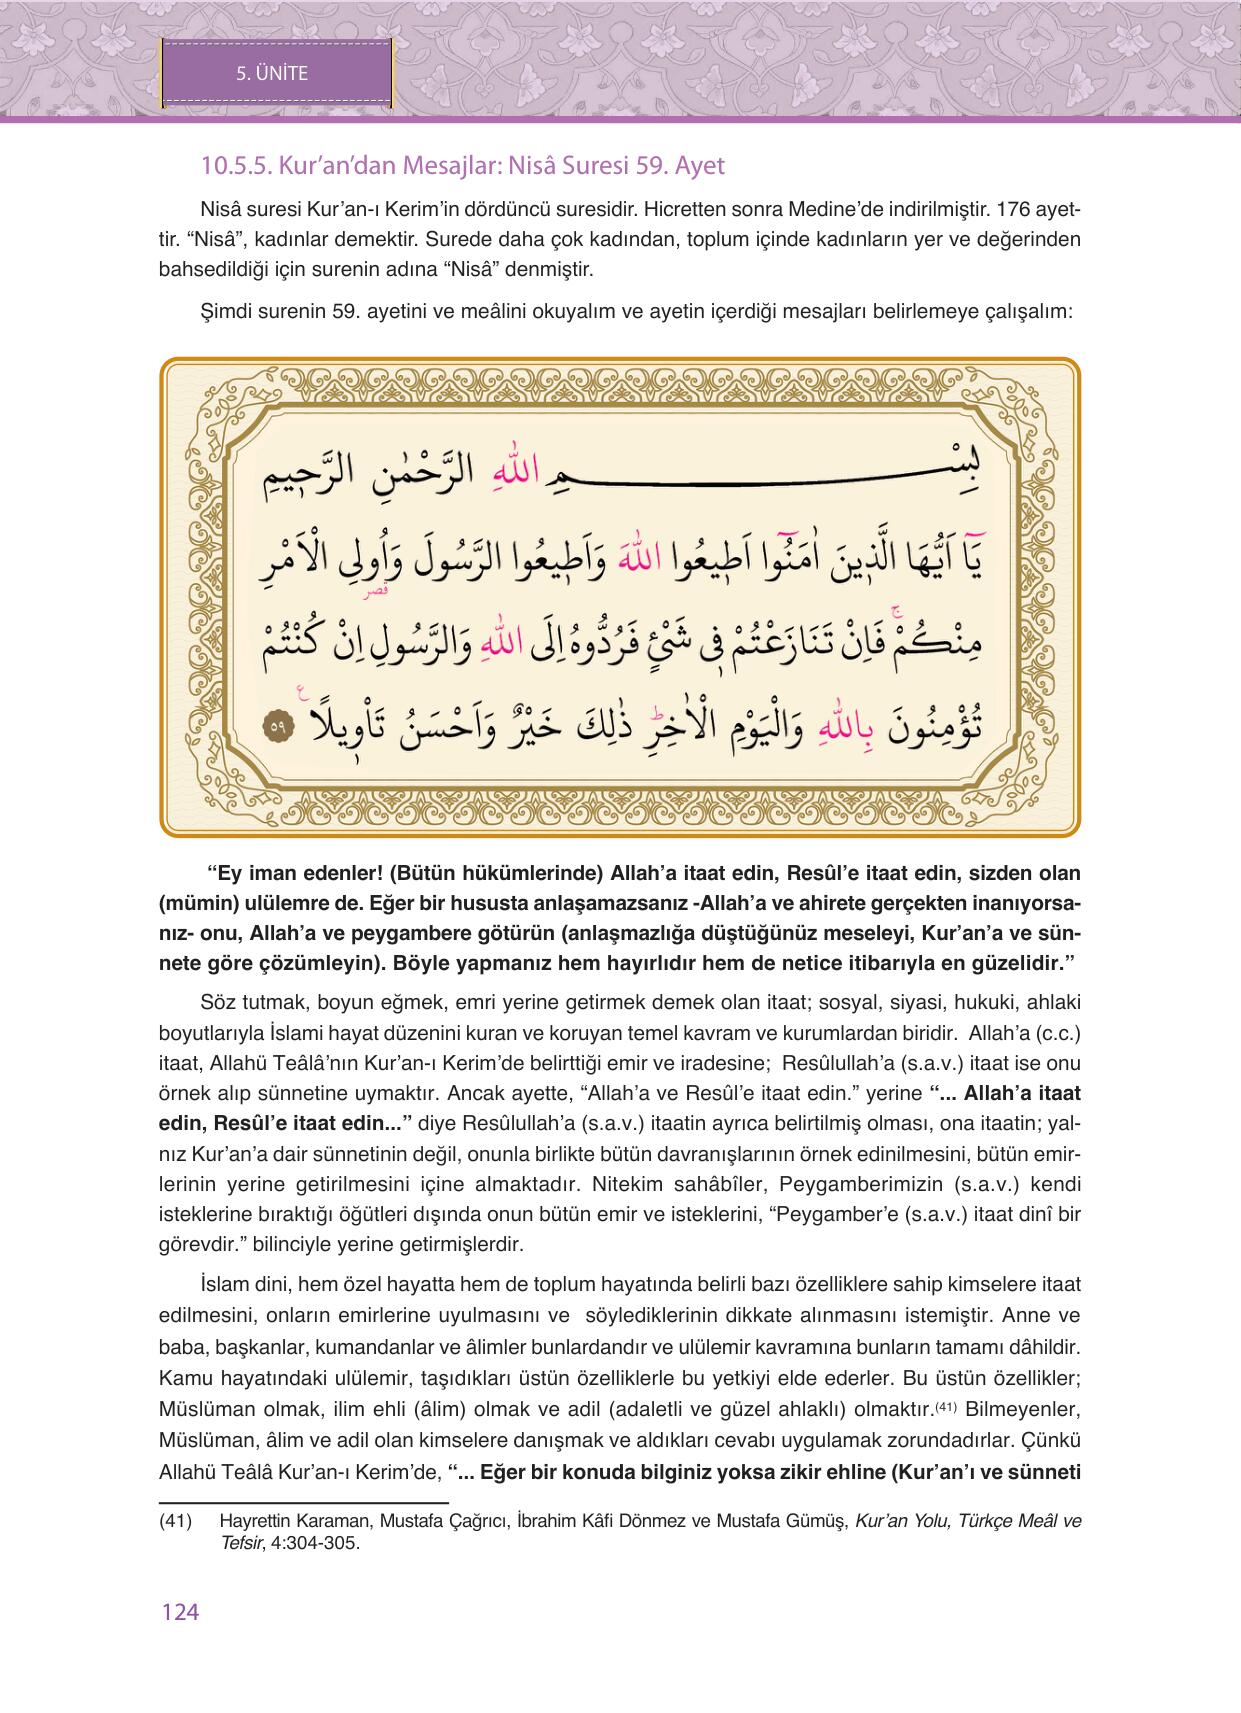 5. ÜNİTE
10.5.5. Kur’an’dan Mesajlar: Nisâ Suresi 59. Ayet
Nisâ suresi Kur’an-ı Kerim’in dördüncü suresidir. Hicretten sonra Medine’de indirilmiştir. 176 ayet-
tir. “Nisâ”, kadınlar demektir. Surede daha çok kadından, toplum içinde kadınların yer ve değerinden
bahsedildiği için surenin adına “Nisâ” denmiştir.
Şimdi surenin 59. ayetini ve meâlini okuyalım ve ayetin içerdiği mesajları belirlemeye çalışalım:
بِسْمِ اللّٰهِ الرَّحْمٰنِ الرَّح۪يمِ
يَٓا اَيُّهَا الَّذ۪ينَ اٰمَنُٓوا اَط۪يعُوا اللّٰهَ وَاَط۪يعُوا الرَّسُولَ وَاُولِي الْاَمْرِ
قصر
مِنْكُمْۚ فَاِنْ تَنَازَعْتُمْ ف۪ي شَيْءٍ فَرُدُّوهُ اِلَى اللّٰهِ وَالرَّسُولِ اِنْ كُنْتُمْ
تُؤْمِنُونَ بِاللّٰهِ وَالْيَوْمِ الْاٰخِرِۜ ذٰلِكَ خَيْرٌ وَاَحْسَنُ تَأْو۪يلًا ع ٥٩
“Ey iman edenler! (Bütün hükümlerinde) Allah’a itaat edin, Resûl’e itaat edin, sizden olan
(mümin) ulülemre de. Eğer bir hususta anlaşamazsanız -Allah’a ve ahirete gerçekten inanıyorsa-
nız- onu, Allah’a ve peygambere götürün (anlaşmazlığa düştüğünüz meseleyi, Kur’an’a ve sün-
nete göre çözümleyin). Böyle yapmanız hem hayırlıdır hem de netice itibarıyla en güzelidir.”
Söz tutmak, boyun eğmek, emri yerine getirmek demek olan itaat; sosyal, siyasi, hukuki, ahlaki
boyutlarıyla İslami hayat düzenini kuran ve koruyan temel kavram ve kurumlardan biridir. Allah’a (c.c.)
itaat, Allahü Teâlâ’nın Kur’an-ı Kerim’de belirttiği emir ve iradesine; Resûlullah’a (s.a.v.) itaat ise onu
örnek alıp sünnetine uymaktır. Ancak ayette, “Allah’a ve Resûl’e itaat edin.” yerine “... Allah’a itaat
edin, Resûl’e itaat edin...” diye Resûlullah’a (s.a.v.) itaatin ayrıca belirtilmiş olması, ona itaatin; yal-
nız Kur’an’a dair sünnetinin değil, onunla birlikte bütün davranışlarının örnek edinilmesini, bütün emir-
lerinin yerine getirilmesini içine almaktadır. Nitekim sahâbîler, Peygamberimizin (s.a.v.) kendi
isteklerine bıraktığı öğütleri dışında onun bütün emir ve isteklerini, “Peygamber’e (s.a.v.) itaat dinî bir
görevdir.” bilinciyle yerine getirmişlerdir.
İslam dini, hem özel hayatta hem de toplum hayatında belirli bazı özelliklere sahip kimselere itaat
edilmesini, onların emirlerine uyulmasını ve söylediklerinin dikkate alınmasını istemiştir. Anne ve
baba, başkanlar, kumandanlar ve âlimler bunlardandır ve ulülemir kavramına bunların tamamı dâhildir.
Kamu hayatındaki ulülemir, taşıdıkları üstün özelliklerle bu yetkiyi elde ederler. Bu üstün özellikler;
Müslüman olmak, ilim ehli (âlim) olmak ve adil (adaletli ve güzel ahlaklı) olmaktır.(41) Bilmeyenler,
Müslüman, âlim ve adil olan kimselere danışmak ve aldıkları cevabı uygulamak zorundadırlar. Çünkü
Allahü Teâlâ Kur’an-ı Kerim’de, “... Eğer bir konuda bilginiz yoksa zikir ehline (Kur’an’ı ve sünneti
(41) Hayrettin Karaman, Mustafa Çağrıcı, İbrahim Kâfi Dönmez ve Mustafa Gümüş, Kur’an Yolu, Türkçe Meâl ve
Tefsir, 4:304-305.
124